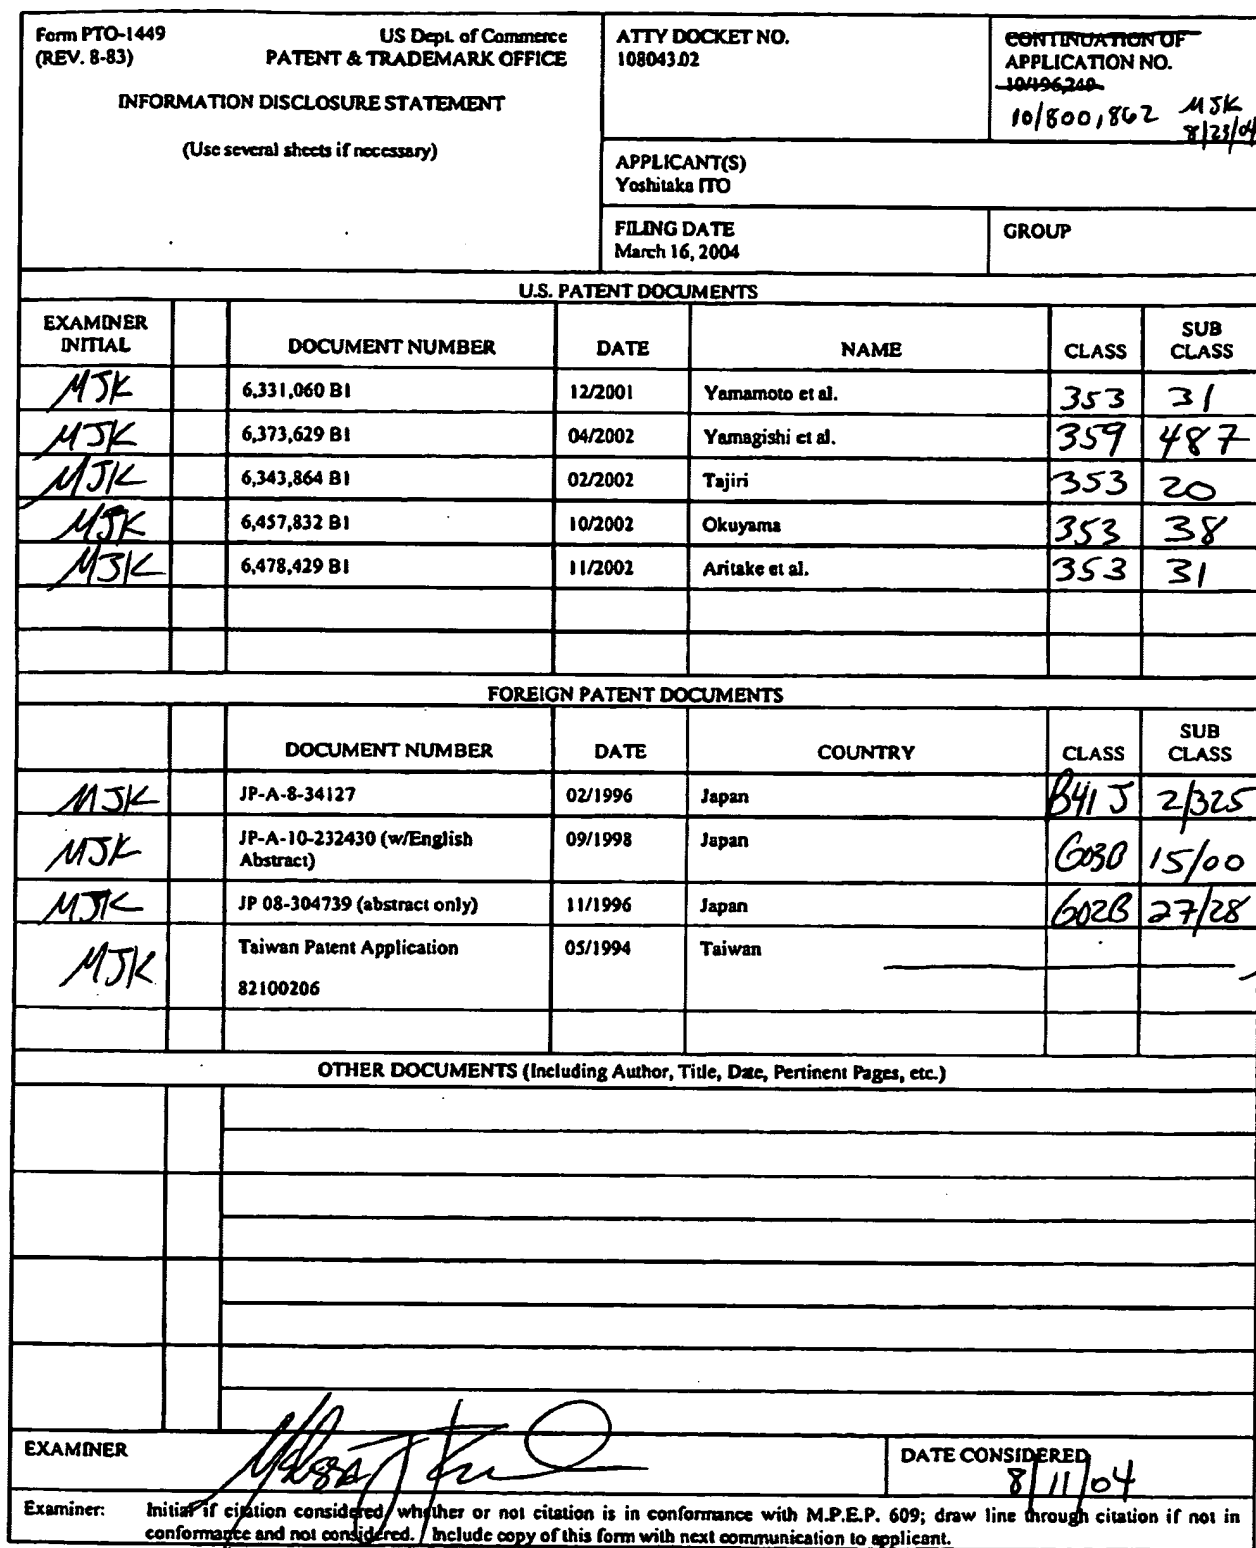 Form PTO-1449 US Dept. of Commerce
(REV. 8-83) PATENT & TRADEMARK OFFICE
INFORMATION DISCLOSURE STATEMENT
(Use several sheets if necessary)
ATTY DOCKET NO.
108043.02
CONTINUATION OF
APPLICATION NO.
10/496,240
10/800,862 MJK
8/23/04
APPLICANT(S)
Yoshitaka ITO
FILING DATE
March 16, 2004
GROUP
U.S. PATENT DOCUMENTS
EXAMINER INITIAL DOCUMENT NUMBER DATE NAME CLASS SUB CLASS
MJK 6,331,060 B1 12/2001 Yamamoto et al. 353 31
MJK 6,373,629 B1 04/2002 Yamagishi et al. 359 487
MJK 6,343,864 B1 02/2002 Tajiri 353 20
MJK 6,457,832 B1 10/2002 Okuyama 353 38
MJK 6,478,429 B1 11/2002 Aritake et al. 353 31
FOREIGN PATENT DOCUMENTS
DOCUMENT NUMBER DATE COUNTRY CLASS SUB CLASS
MJK JP-A-8-34127 02/1996 Japan B41J 2/325
MJK JP-A-10-232430 (w/English 09/1998 Japan G03B 15/00
Abstract)
MJK JP 08-304739 (abstract only) 11/1996 Japan G02B 27/28
MJK Taiwan Patent Application 05/1994 Taiwan
82100206
OTHER DOCUMENTS (Including Author, Title, Date, Pertinent Pages, etc.)
EXAMINER
DATE CONSIDERED
8/11/04
Examiner: Initial if citation considered, whether or not citation is in conformance with M.P.E.P. 609; draw line through citation if not in
conformance and not considered. Include copy of this form with next communication to applicant.